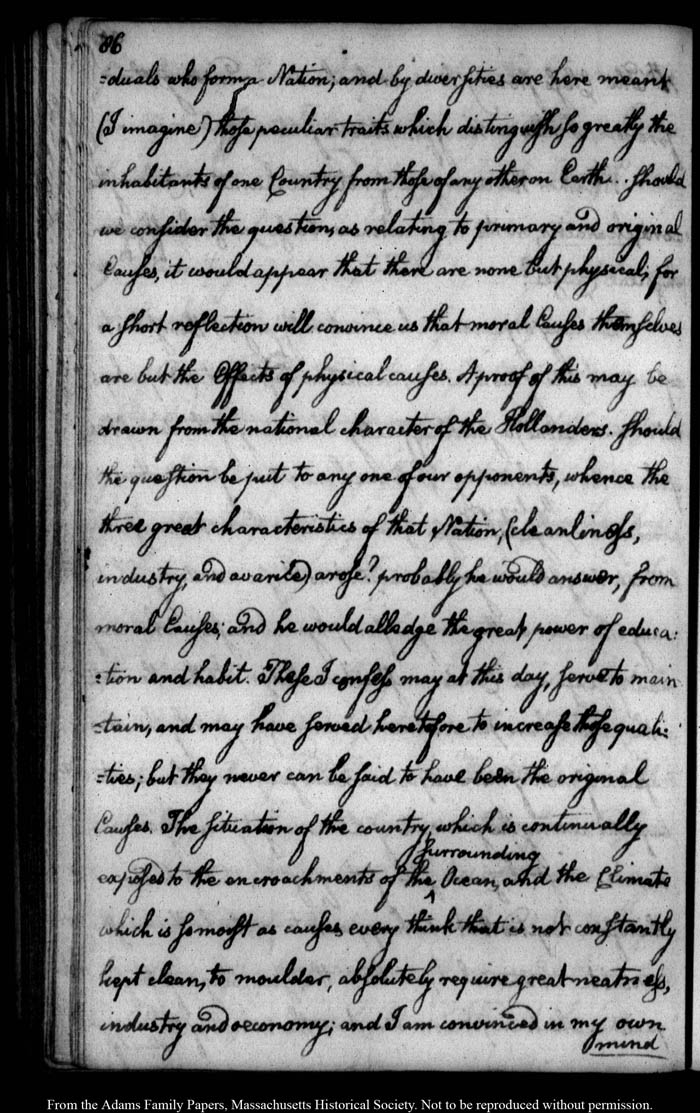 86
=duals who form a Nation; and by diversities are here meant
(I imagine) those peculiar traits which distinguish so greatly the
inhabitants of one Country from those of any other on Earth. Should
we consider the question, as relating to primary and original
Causes, it would appear that there are none but physical, for
a short reflection will convince us that moral Causes themselves
are but the Effects of physical causes. A proof of this may be
drawn from the national character of the Hollanders. Should
the question be put to any one of our opponents, whence the
three great characteristics of that Nation, (cleanliness,
industry, and avarice) arose? probably he would answer, from
moral Causes; and he would alledge the great power of educa:
:tion and habit. These I confess may at this day, serve to main
=tain, and may have served heretofore to increase those quali:
=ties; but they never can be said to have been the original
Causes. The situation of the country, which is continually
surrounding
exposed to the encroachments of the ^ Ocean, and the Climate
which is so moist as causes every think that is not constantly
kept clean, to moulder, absolutely require great neatness,
industry and oeconomy; and I am convinced in my own
mind
From the Adams Family Papers, Massachusetts Historical Society. Not to be reproduced without permission.